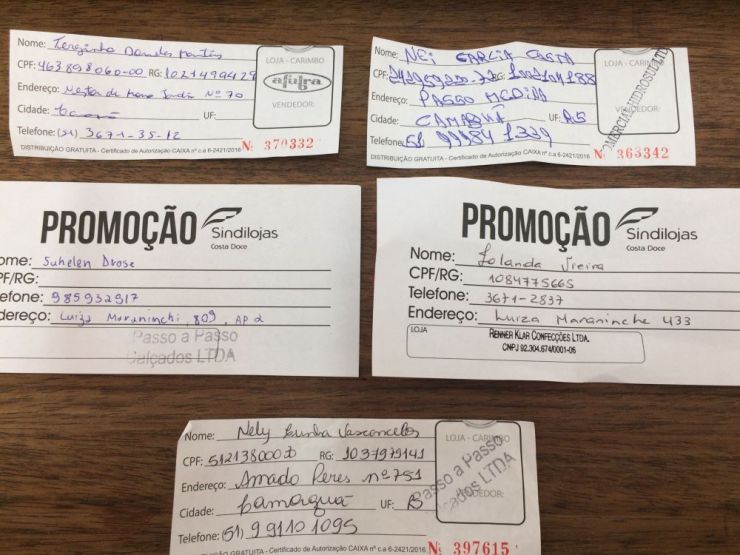 Nome: Terezinha Dornelles Martins
CPF: 963898060-00 RG: 1021499429
Endereço: Nº 70
Cidade: UF:
Telefone: (51) 3671-35-12
LOJA - CARIMBO
afubra
VENDEDOR:
DISTRIBUIÇÃO GRATUITA - Certificado de Autorização CAIXA nº c.a 6-2421/2016 Nº 370332
Nome: NEI GARCIA COSTA
CPF: RG:
Endereço: PASSO
Cidade: CAMAQUÃ UF: RS
Telefone: (51) 99984 1339
LOJA - CARIMBO
COMERCIAL HIDROSUL LTD
VENDEDOR:
DISTRIBUIÇÃO GRATUITA - Certificado de Autorização CAIXA nº c.a 6-2421/2016 Nº 363342
PROMOÇÃO Sindilojas
Costa Doce
ome: Suhelen Drose
PF/RG:
efone: 985932917
dereço: Luiza Maraninchi, 809, AP 2
Passo a Passo
Calçados LTDA
PROMOÇÃO Sindilojas
Costa Doce
Nome: Iolanda Vieira
CPF/RG: 1084775665
Telefone: 3671-2837
Endereço: Luiza Maraninche 433
LOJA
RENNER KLAR CONFECÇÕES LTDA.
CNPJ 92.304.674/0001-06
Nome: Nely Cunha Vasconcelos
CPF: RG: 1037979141
Endereço: Amado Peres nº 751
Cidade: Camaquã UF: RS
Telefone: (51) 9 9110 1095
LOJA - CARIMBO
Passo a Passo
Calçados LTDA
VENDEDOR:
DISTRIBUIÇÃO GRATUITA - Certificado de Autorização CAIXA nº c.a 6-2421/2016 Nº 397615